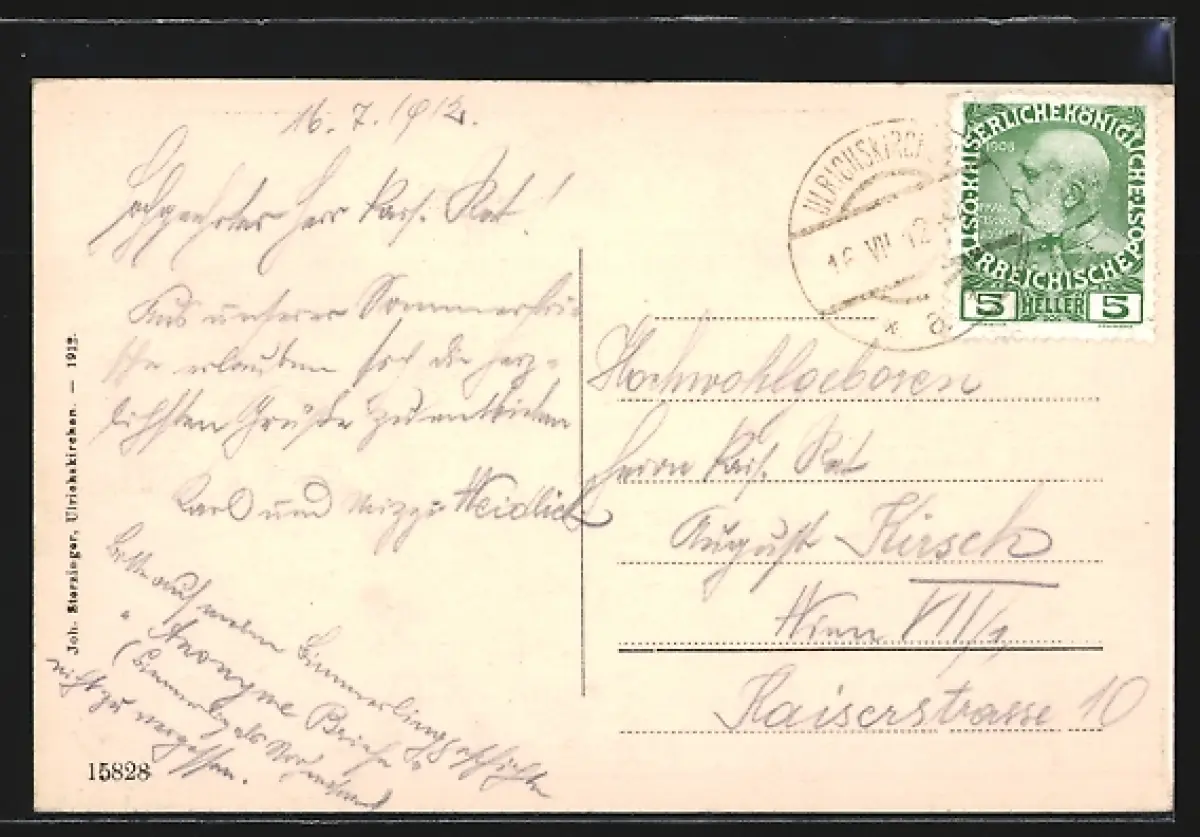 16. 7. 1912.
Hochgeehrter Herr Kais. Rat!
Aus unserer Sommerfri-
sche erlauben sich die herz-
lichsten Grüße zu entbieten
Karl und Mizzi Weidlich
Bitte auf meine Simmerlinggeschichte
"Anonyme Briefe"
(Simmerling als Vormund)
nicht zu vergessen.
Joh. Sterzinger, Ulrichskirchen. — 1912.
15828
ULRICHSKIRCH
16 VII 12
* a
KAISERLICHE KÖNIGLICHE ÖSTERREICHISCHE POST
1908
5 HELLER 5
Hochwohlgeboren
Herrn Kais. Rat
August Kirsch
Wien VII/1
Kaiserstrasse 10